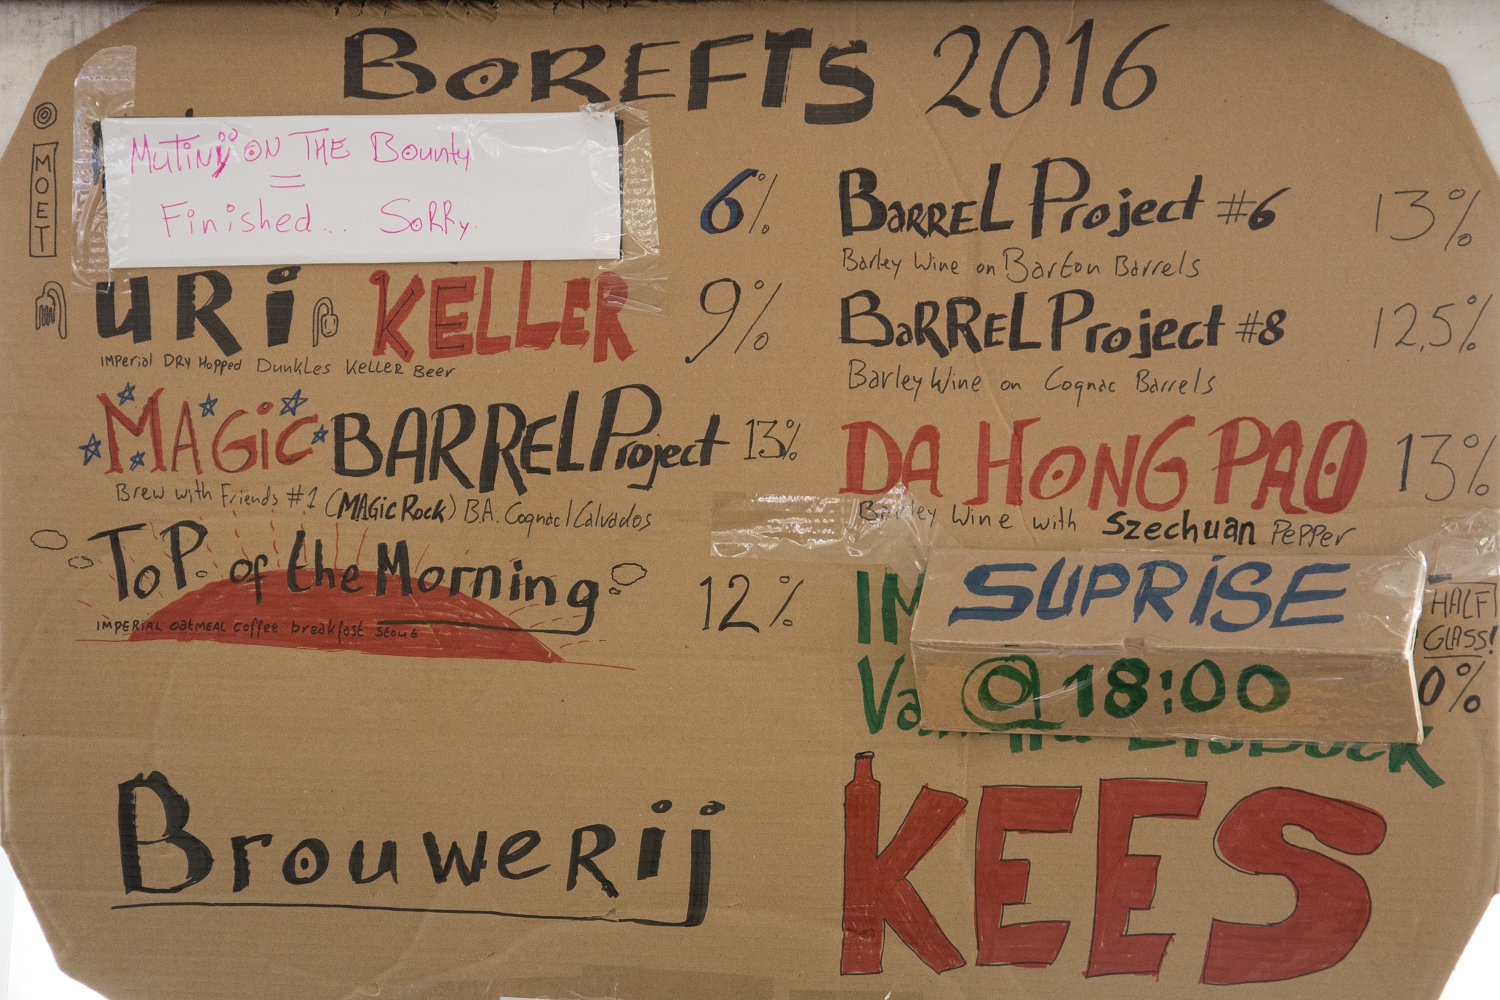 BOREFTS 2016
MOET
Mutiny ON THE Bounty
=
Finished... SoRRy.
6%
URi KELLER 9%
IMPerial DRY Hopped Dunkles KELLER Beer
MAGiC BARRELProject 13%
Brew with Friends #1 (MAGic Rock) B.A. Cognac/Calvados
ToP. of the Morning 12%
IMPERIAL oatmeal coffee breakfast stout
BaRREL Project #6 13%
Barley Wine on Barton Barrels
BaRREL Project #8 12,5%
Barley Wine on Cognac Barrels
DA HONG PAO 13%
Barley Wine with Szechuan PePPer
SUPRISE
@ 18:00
HALF
GLASS!
0%
Brouwerij
KEES